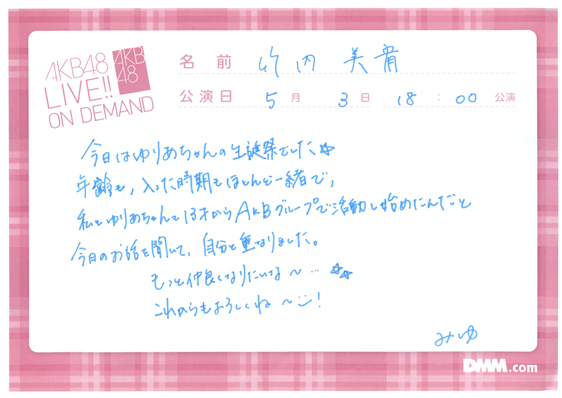 AKB48
LIVE!!
ON DEMAND
AKB
48
名 前 竹内 美宥
公演日 5月 3日 18:00 公演
今日はゆりあちゃんの生誕祭でした☆
年齢も,入った時期もほとんど一緒で,
私もゆりあちゃんも13才からAKBグループで活動し始めたんだなと
今日のお話を聞いて,自分と重なりました。
もっと仲良くなりたいな〜… ☆☆
これからもよろしくね〜!
みゆ
DMM.com